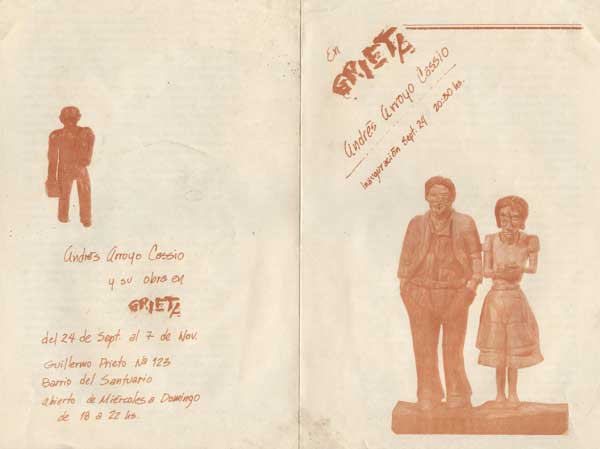 En
GRIETA
Andrés Arroyo Cassio
Inauguración Sept. 24 20:30 hs.
Andrés Arroyo Cassio
y su obra en
GRIETA
del 24 de Sept. al 7 de Nov.
Guillermo Prieto Nº 123
Barrio del Santuario
abierto de Miércoles a Domingo
de 18 a 22 hs.